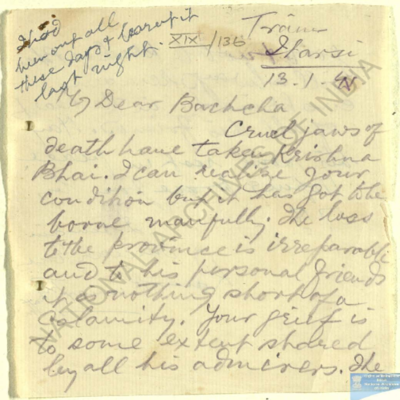 I had
been out all
these days & learnt it
last night.
XIX/136
Train
Itarsi
13.1.
My Dear Bachcha
Cruel jaws of
death have taken Krishna
Bhai. I can realise your
condition but it has got to be
borne manfully. The loss
to the province is irreparable
and to his personal friends
it is nothing short of a
calamity. Your grief is
to some extent shared
by all his admirers. The
NATIONAL ARCHIVES OF INDIA